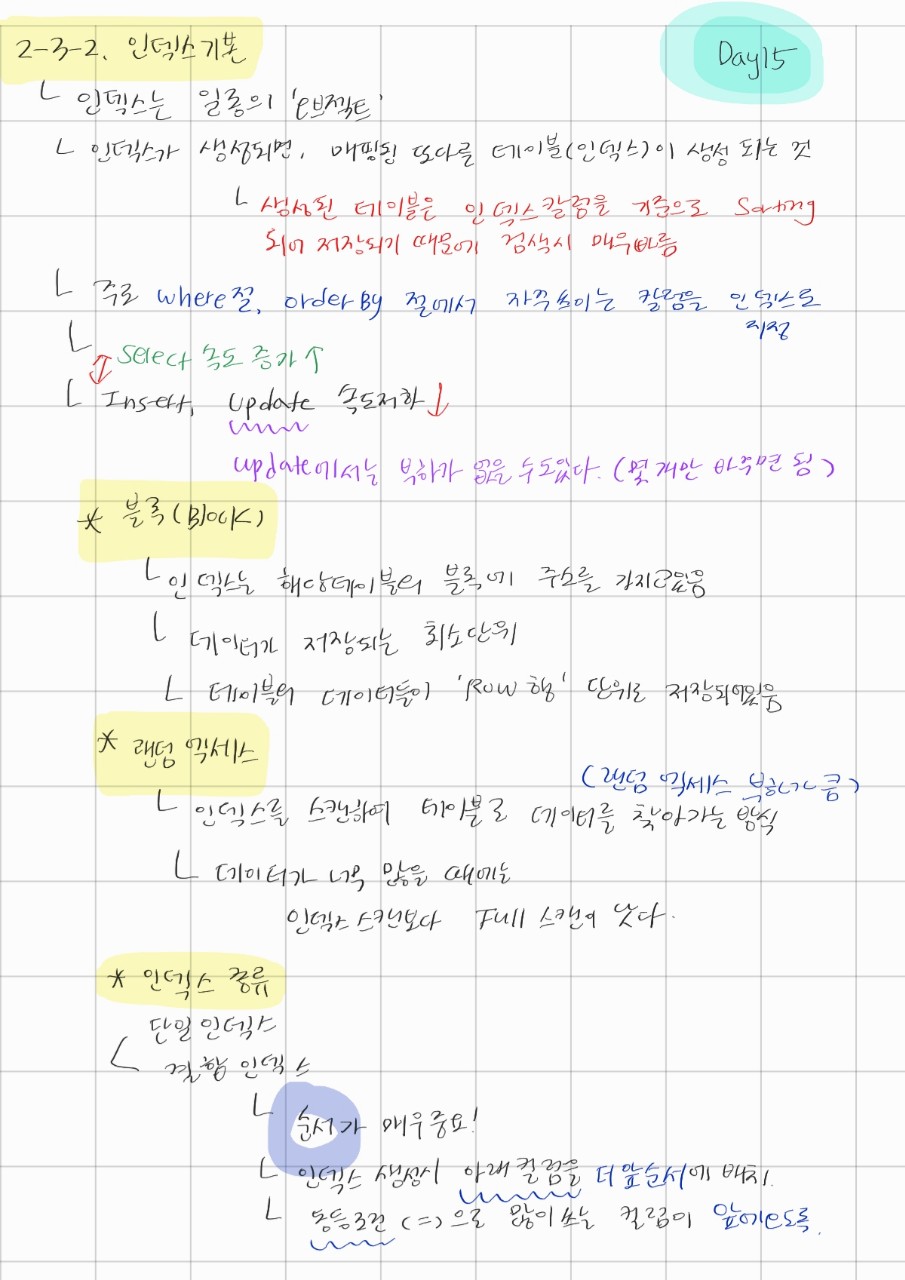 2-3-2. 인덱스기본
Day15
└ 인덱스는 일종의 '오브젝트'
└ 인덱스가 생성되면, 매핑된 또다른 테이블(인덱스)이 생성 되는 것
└ 생성된 테이블은 인덱스칼럼을 기준으로 Sorting
되어 저장되기 때문에 검색시 매우빠름
└ 주로 where절, order By 절에서 자주쓰이는 칼럼을 인덱스로
지정
└ Select 속도 증가 ↑
└ Insert, Update 속도저하 ↓
update에서는 부하가 없을 수도있다. (몇 개만 바꾸면 됨)
* 블록(Block)
└ 인덱스는 해당테이블의 블록에 주소를 가지고있음
└ 데이터가 저장되는 최소단위
└ 테이블의 데이터들이 'Row 행' 단위로 저장되어있음
* 랜덤 엑세스
(랜덤 엑세스 부하가 큼)
└ 인덱스를 스캔하여 테이블로 데이터를 찾아가는 방식
└ 데이터가 너무 많을 때에는
인덱스 스캔보다 Full 스캔이 낫다.
* 인덱스 종류
단일 인덱스
└ 결합 인덱스
└ 순서가 매우중요!
└ 인덱스 생성시 아래컬럼을 더앞순서에 배치.
└ 동등조건 (=)으로 많이쓰는 컬럼이 앞에오도록.